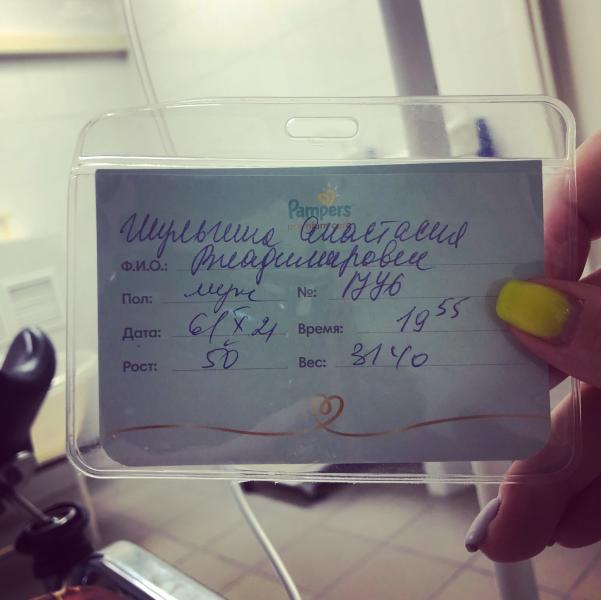 Pampers
Анастасия
Ф.И.О.: Владимировна
Пол: муж №: 1776
Дата: 6/X 21 Время: 19 55
Рост: 50 Вес: 3140